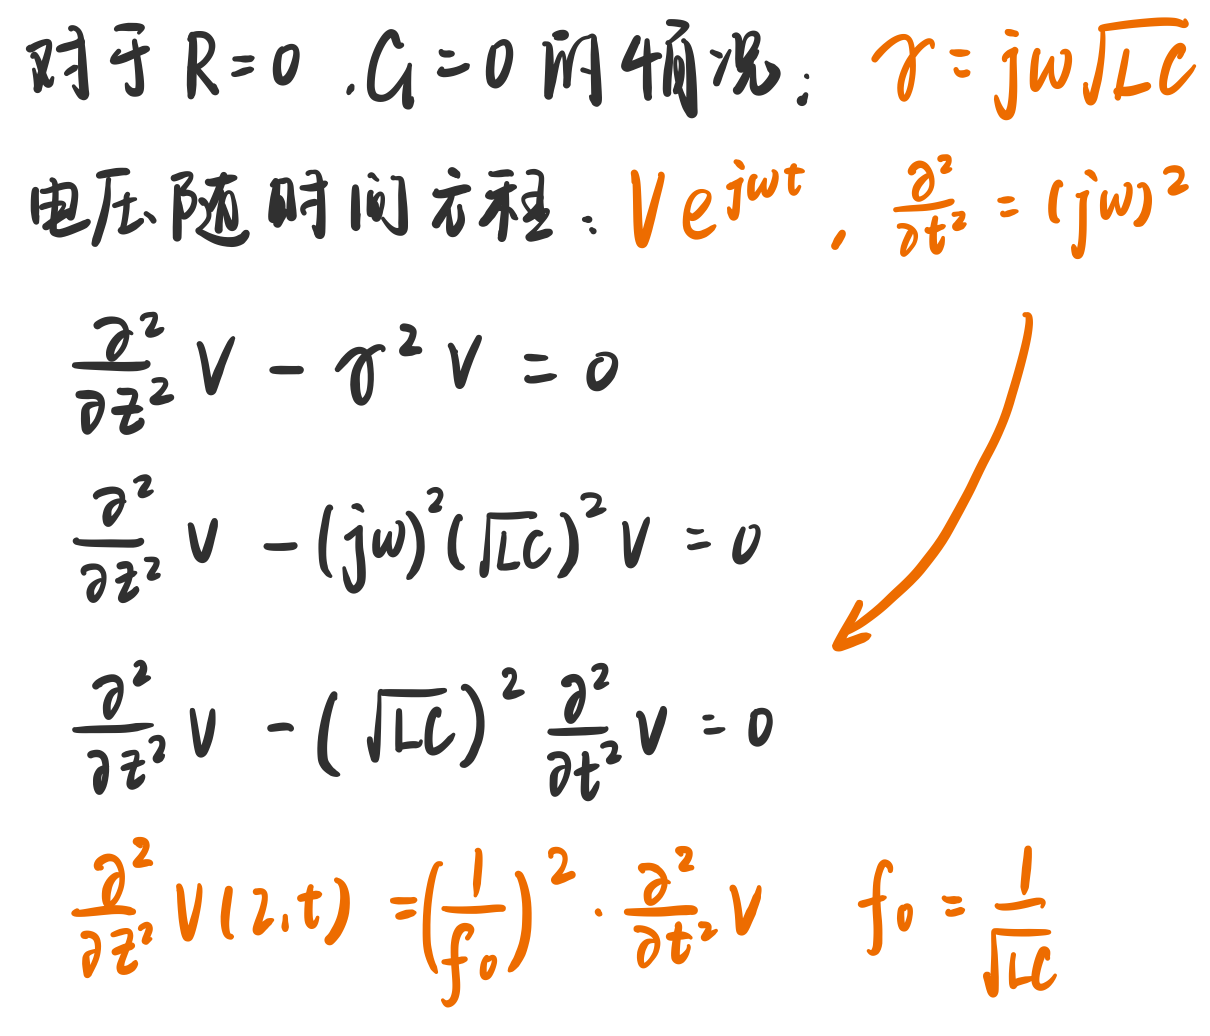 对于 R=0 .G=0 的情况: γ=jω√LC
电压随时间方程: Ve^{jωt}, ∂²/∂t² = (jω)²
∂²/∂z² V - γ² V = 0
∂²/∂z² V - (jω)²(√LC)² V = 0
∂²/∂z² V - (√LC)² ∂²/∂t² V = 0
∂²/∂z² V(z,t) = (1/f₀)² · ∂²/∂t² V f₀ = 1/√LC